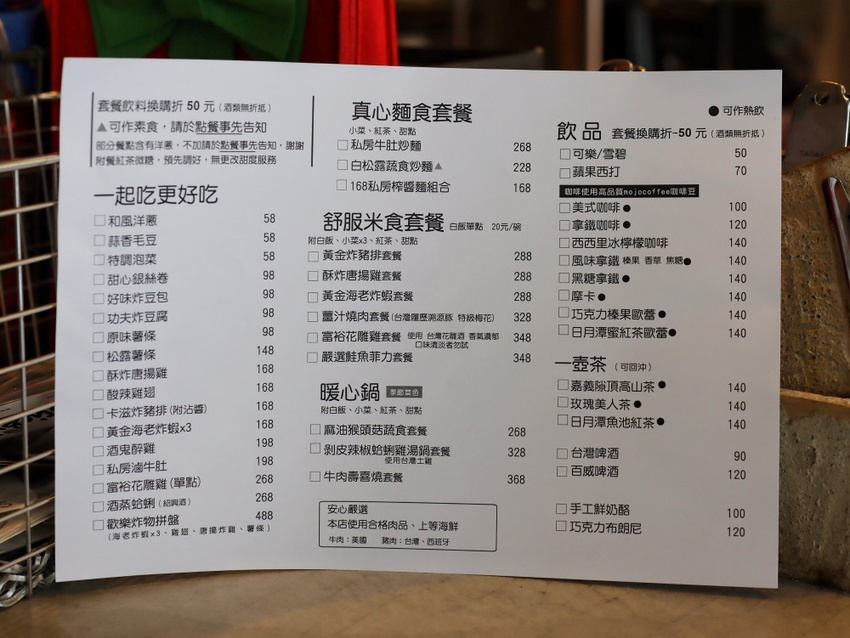 套餐飲料換購折 50 元（酒類無折抵）
▲可作素食，請於點餐事先告知
部分餐點含有洋蔥，不加請於點餐事先告知，謝謝
附餐紅茶微糖，預先調好，無更改甜度服務
一起吃更好吃
□和風洋蔥 58
□蒜香毛豆 58
□特調泡菜 58
□甜心銀絲卷 98
□好味炸豆包 98
□功夫炸豆腐 98
□原味薯條 98
□松露薯條 148
□酥炸唐揚雞 168
□酸辣雞翅 168
□卡滋炸豬排(附沾醬) 168
□黃金海老炸蝦x3 168
□酒鬼醉雞 198
□私房滷牛肚 198
□富裕花雕雞(單點) 268
□酒蒸蛤蜊(紹興酒) 268
□歡樂炸物拼盤 488
(海老炸蝦x3、雞翅、唐揚炸雞、薯條)
真心麵食套餐
小菜、紅茶、甜點
□私房牛肚炒麵 268
□白松露蔬食炒麵▲ 228
□168私房榨醬麵組合 168
舒服米食套餐 白飯單點 20元/碗
附白飯、小菜x3、紅茶、甜點
□黃金炸豬排套餐 288
□酥炸唐揚雞套餐 288
□黃金海老炸蝦套餐 288
□薑汁燒肉套餐(台灣履歷溯源豚 特級梅花) 328
□富裕花雕雞套餐 使用 台灣花雕酒 香氣濃郁 348
口味清淡者勿試
□嚴選鮭魚菲力套餐 348
暖心鍋 季節菜色
附白飯、小菜、紅茶、甜點
□麻油猴頭菇蔬食套餐 268
□剝皮辣椒蛤蜊雞湯鍋套餐 328
使用台灣土雞
□牛肉壽喜燒套餐 368
安心嚴選
本店使用合格肉品、上等海鮮
牛肉：美國 豬肉：台灣、西班牙
●可作熱飲
飲品 套餐換購折-50 元（酒類無折抵）
□可樂/雪碧 50
□蘋果西打 70
咖啡使用高品質mojocoffee咖啡豆
□美式咖啡● 100
□拿鐵咖啡● 120
□西西里冰檸檬咖啡 140
□風味拿鐵 榛果 香草 焦糖● 140
□黑糖拿鐵● 140
□摩卡● 140
□巧克力榛果歐蕾● 140
□日月潭蜜紅茶歐蕾● 140
一壺茶（可回沖）
□嘉義隙頂高山茶● 140
□玫瑰美人茶● 140
□日月潭魚池紅茶● 140
□台灣啤酒 90
□百威啤酒 120
□手工鮮奶酪 100
□巧克力布朗尼 120